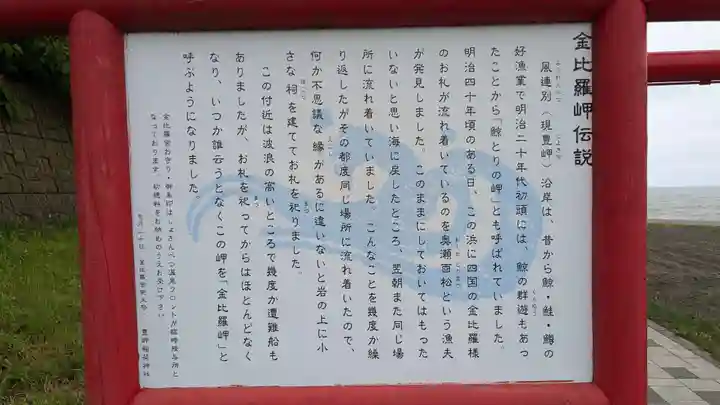 金比羅岬伝説
風連別(現豊岬)沿岸は、昔から鰊・鮭・鱒の
好漁業で明治二十年代初頭には、鯨の群遊もあっ
たことから「鯨とりの岬」とも呼ばれていました。
明治四十年頃のある日、この浜に四国の金比羅様
のお札が流れ着いているのを奥瀬酉松という漁夫
が発見しました。このままにしておいてはもった
いないと思い海に戻したところ、翌朝また同じ場
所に流れ着いていました。こんなことを幾度か繰
り返したがその都度同じ場所に流れ着いたので、
何か不思議な縁があるに違いないと岩の上に小
さな祠を建ててお札を祀りました。
この付近は波浪の高いところで幾度か遭難船も
ありましたが、お札を祀ってからはほとんどなく
なり、いつか誰云うとなくこの岬を「金比羅岬」と
呼ぶようになりました。
金比羅宮お守り・御朱印はしょさんべつ温泉フロントが臨時授与所と
なっております。初穂料をお納めのうえお受け下さい
豊岬稲荷神社